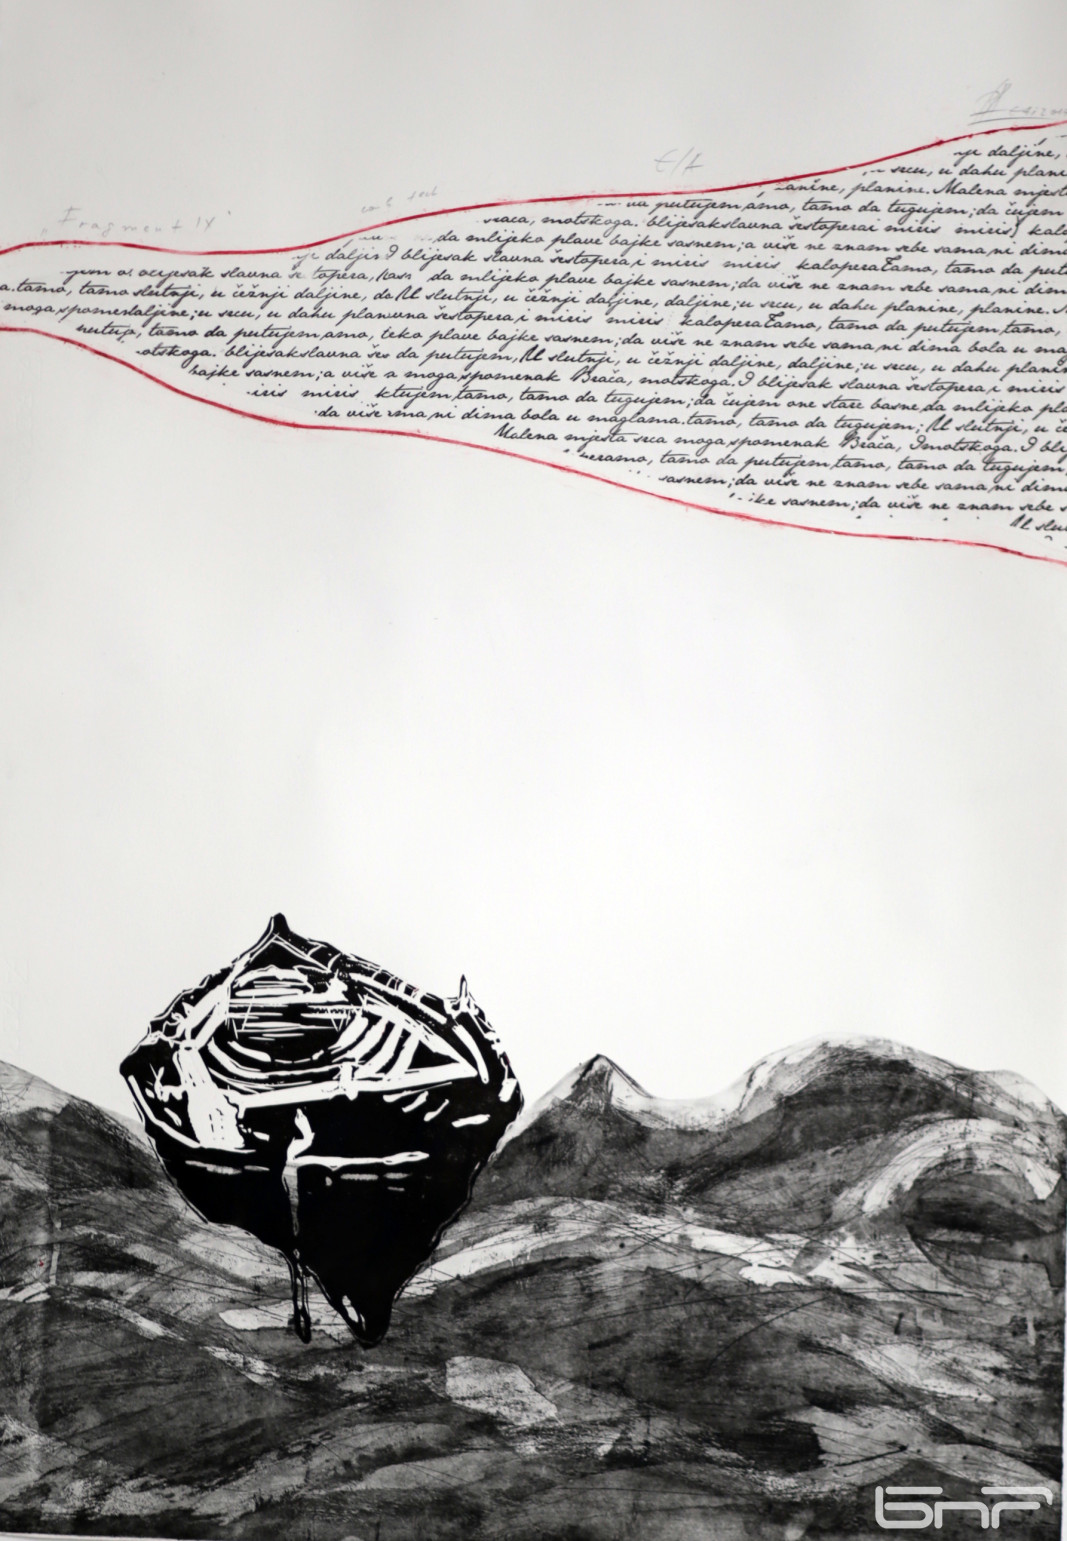 Fragment IV
E/A
je daljine,
srcu, u dahu plani
anine, planine. Malena mjest
putujem,amo, tamo da tugujem;da čujem
motskoga. blijesakslavna šestoperai miris miris kalo
da mlijeko plave bajke sasnem;a više ne znam sebe sama,ni dima
je daljin I blijesak slavna šestopera,i miris miris kaloperaTamo, tamo da put
slavna topera, da mlijeko plave bajke sasnem;da više ne znam sebe sama,ni dim
a.tamo, tamo slutnji, u čežnji daljine, slutnji, u čežnji daljine, daljine;u srcu, u dahu planine, planine.
moga,spomendaljine;u srcu, u dahu šestopera,i miris miris kaloperaTamo, tamo da putujem,tamo,
putujo, tamo da putujem,amo, plave bajke sasnem;da više ne znam sebe sama,ni dima bola u ma
otskoga. blijesakslavna šes da putujem, slutnji, u čežnji daljine, daljine;u srcu, u dahu plani
bajke sasnem;a više a moga,spomenak Brača, motskoga.I blijesak slavna šestopera,i miris
iris miris ktujem,tamo, tamo da tugujem;da čujem one stare basne,da mlijeko pla
da više ma,ni dima bola u maglama.tamo, tamo da tugujem; slutnji, u če
Malena mjesta srca moga,spomenak Brača, Imotskoga.I bli
eramo, tamo da putujem,tamo, tamo da tugujem,
sasnem;da više ne znam sebe sama,ni dima
ike sasnem;da više ne znam sebe s
slu